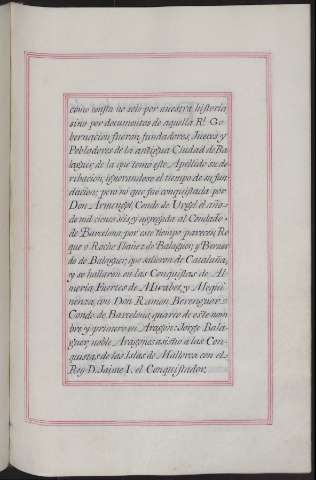 como consta no solo por nuestra historia
sino por documentos de aquella Rl. Go-
bernacion fueron, fundadores, Jueces y
Pobladores de la antigua Ciudad de Ba-
laguer, de la que tomo este Apellido su de-
ribacion, ignorandose el tiempo de su fun-
dacion; pero no que fue conquistada por
Don Armengol, Conde de Urgel el año
de mil ciento seis y agregada al Condado
de Barcelona: por este tiempo parecen Ro-
que o Roche Ibañez de Balaguer, y Bernar-
do de Balaguer, que salieron de Cataluña,
y se hallaron en las Conquistas de Al-
meria, Fuertes de Mirabet, y Mequi-
nenza, con Don Ramon Berenguer
Conde de Barcelona, quarto de este nom-
bre, y primero en Aragon: Jorge Bala-
guer, noble Aragones asistio a las Con-
quistas de las Islas de Mallorca con el
Rey D. Jaime I. el Conquistador.